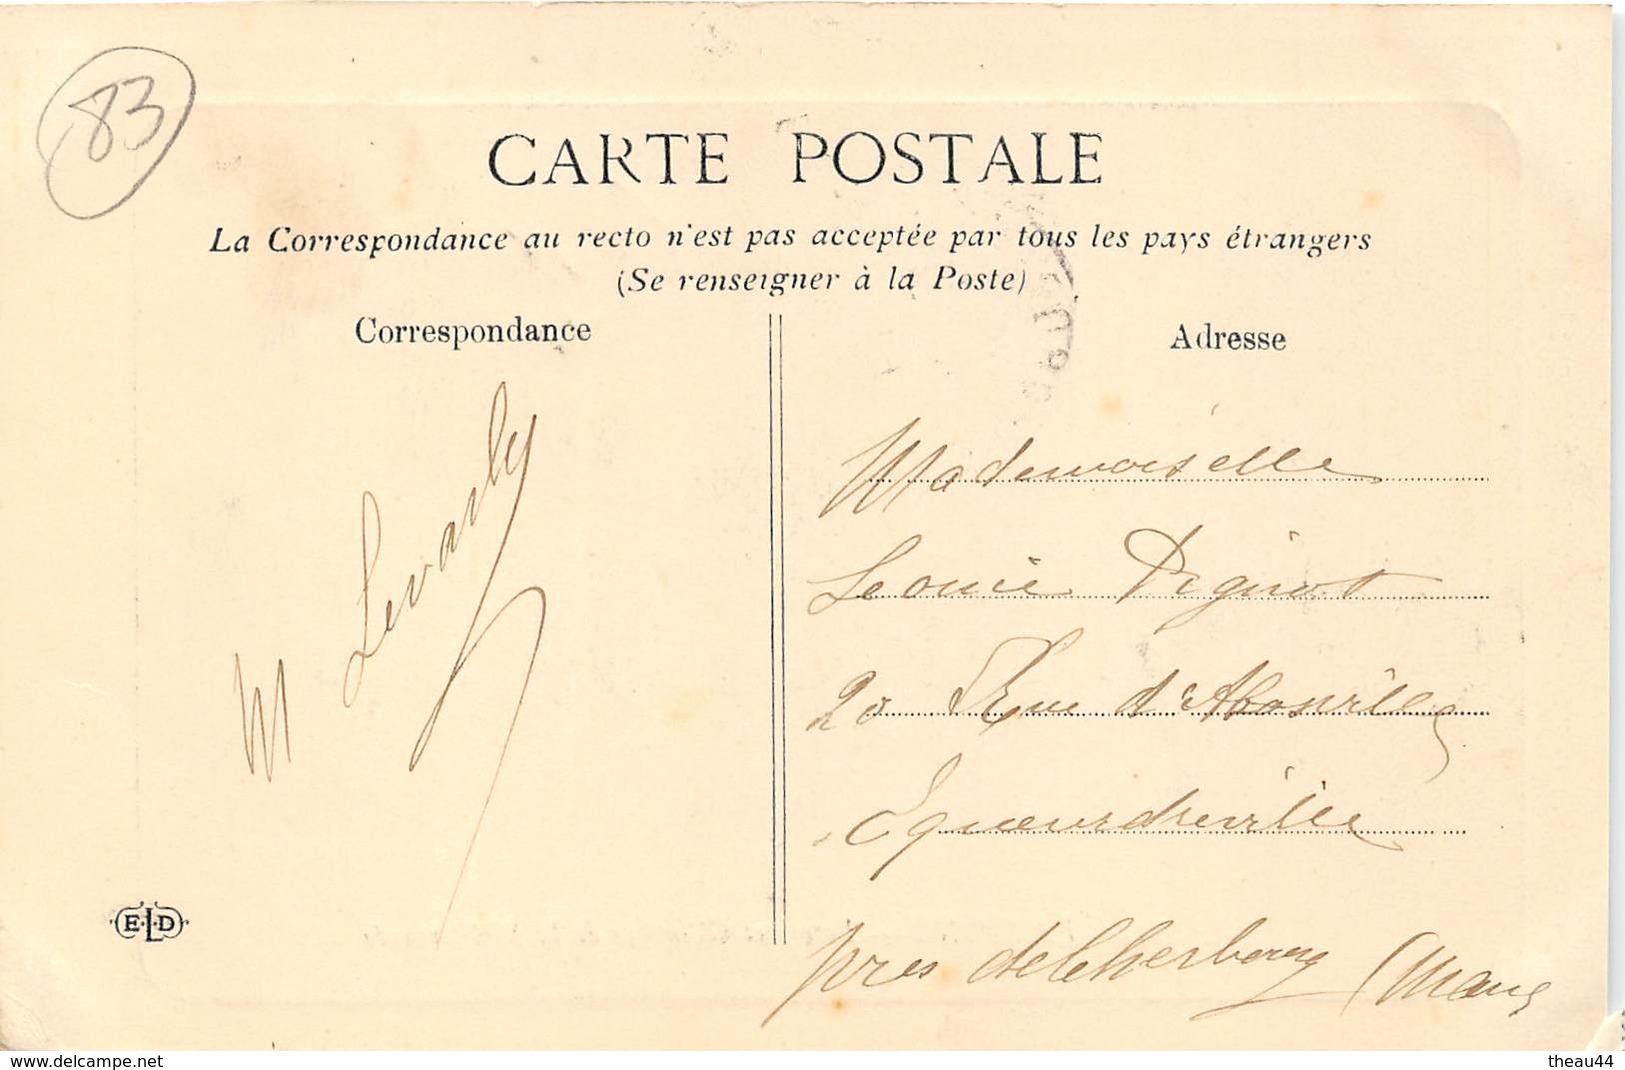 83
CARTE POSTALE
La Correspondance au recto n'est pas acceptée par tous les pays étrangers
(Se renseigner à la Poste)
Correspondance
Adresse
M Levarly
Mademoiselle
Leonie Piginot
20 Rue d'Aboville
Equeurdreville
pres de Cherbourg (Manc
E.L.D
www.delcampe.net
theau44